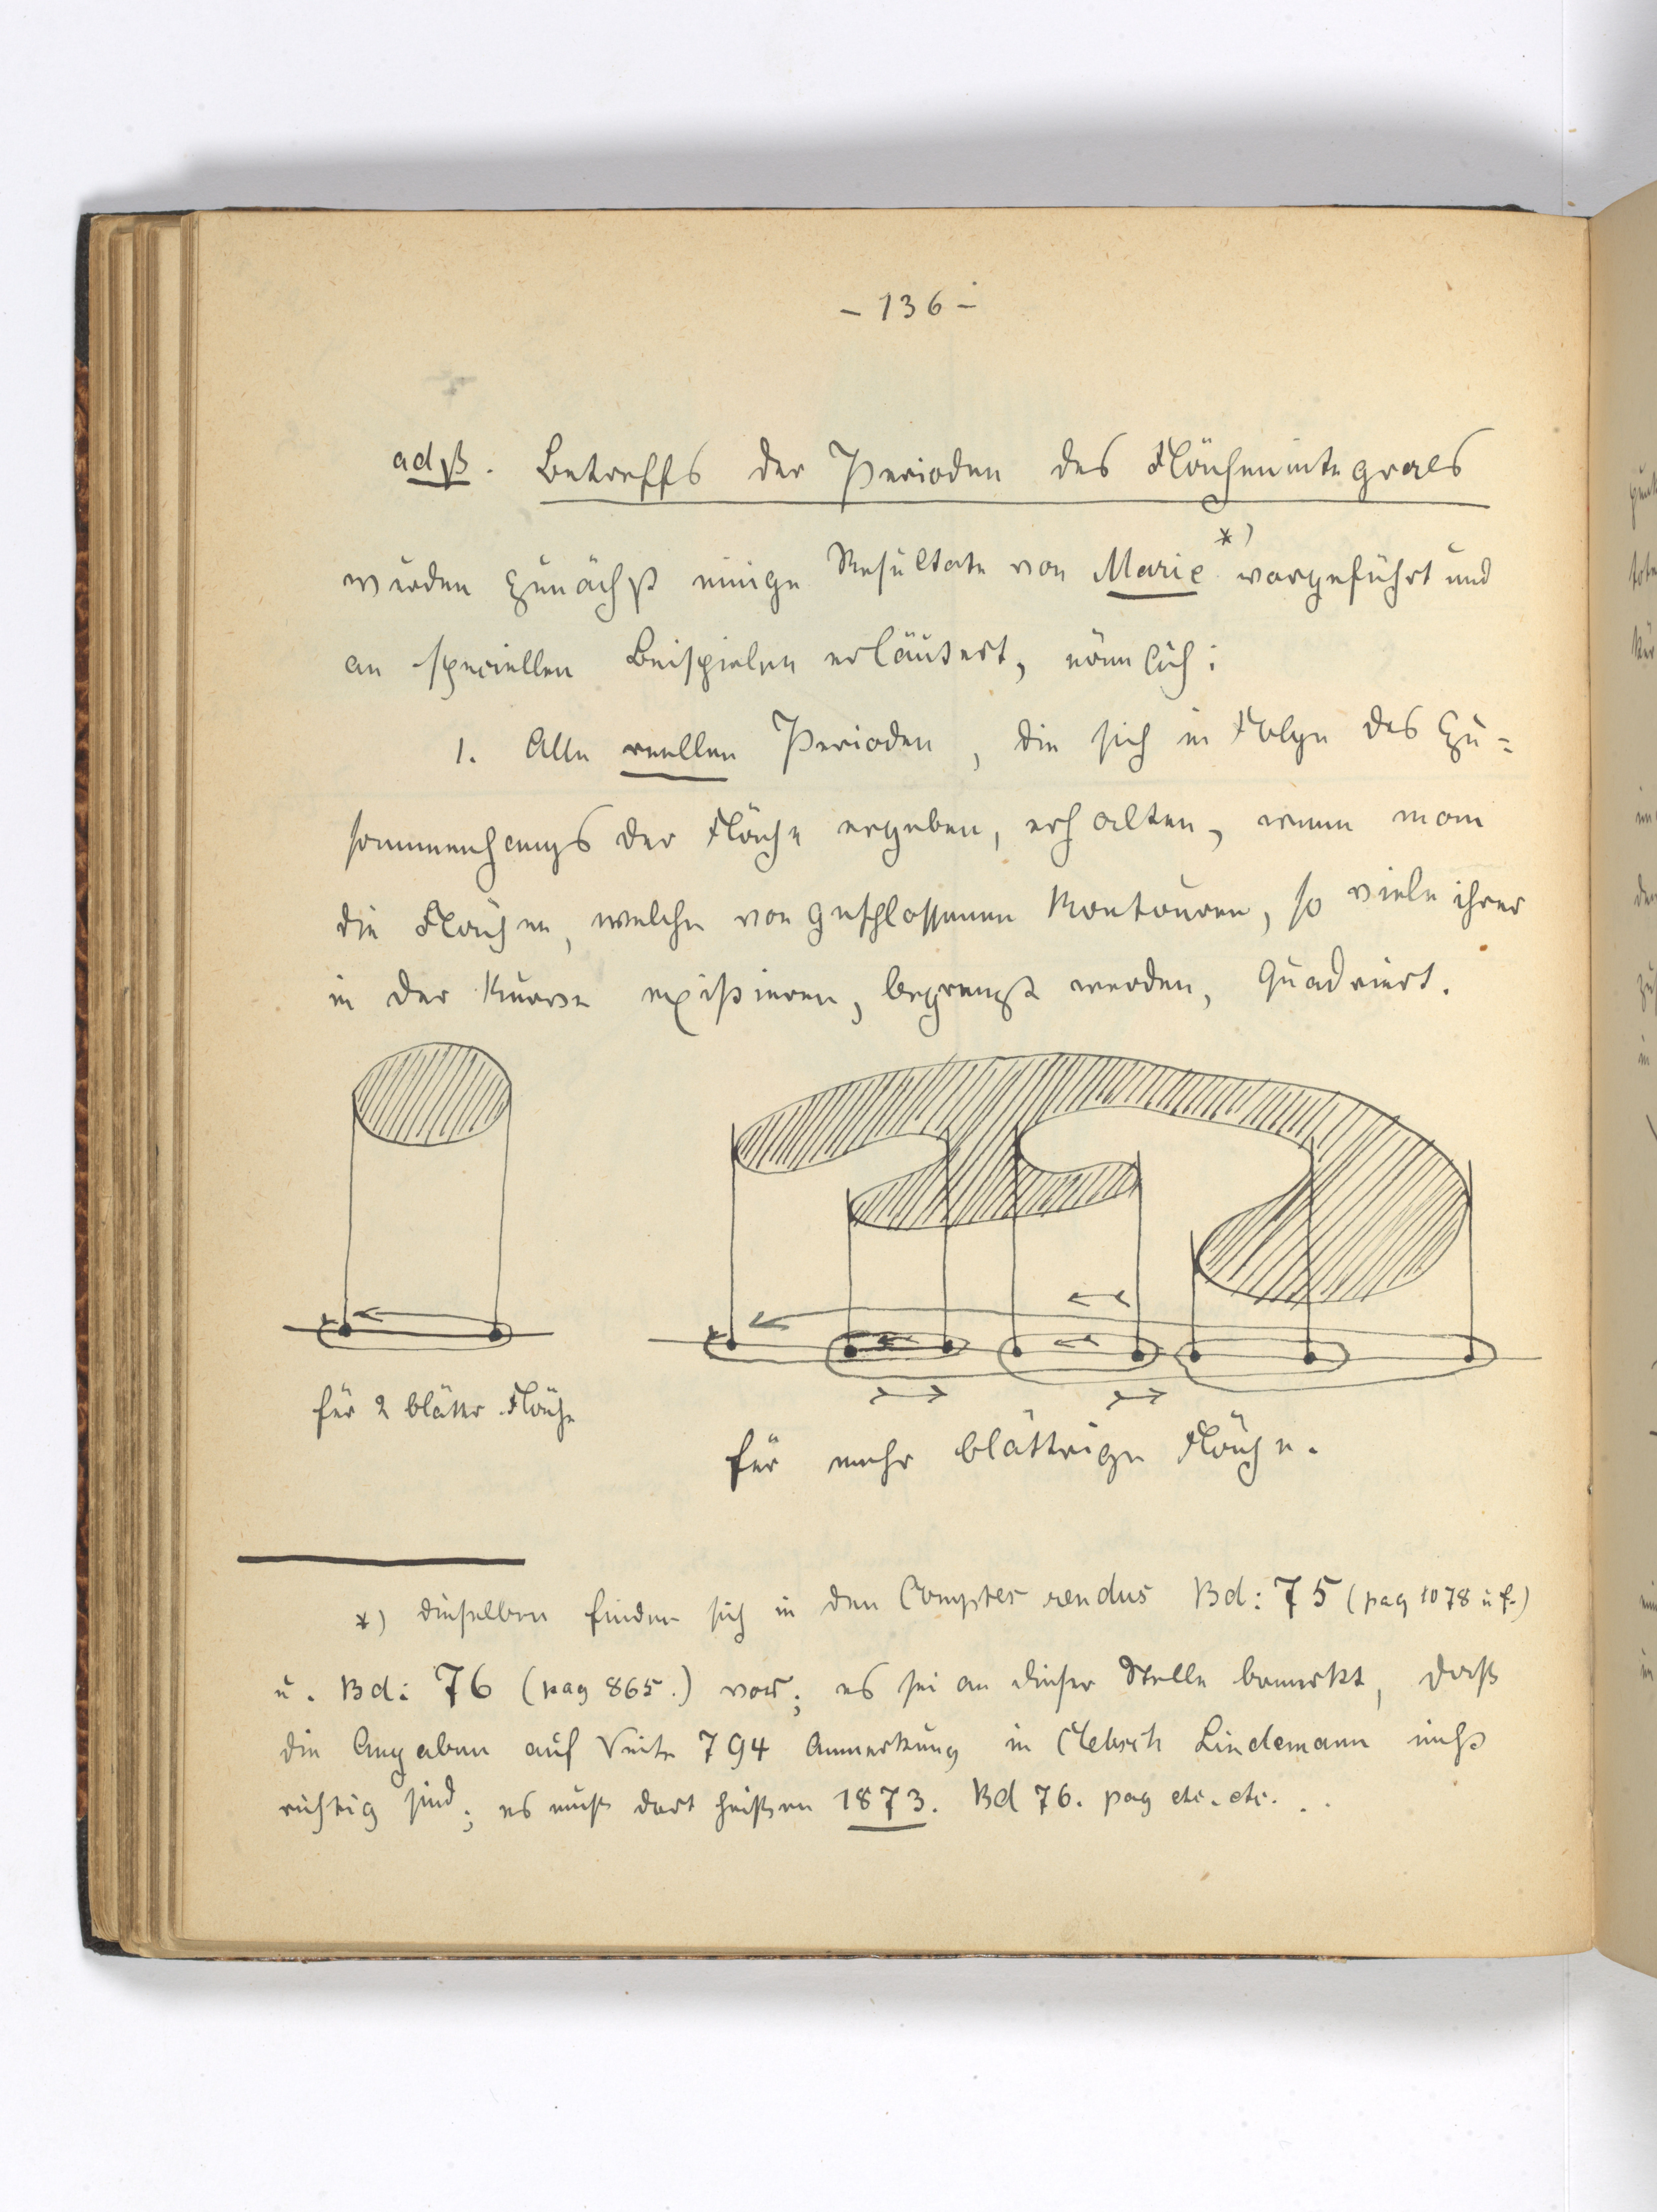 – 136 –
ad β. Betreffs der Perioden des Flächenintegrals
wurden zunächst einige Resultate von Marie *) vorgeführt und
an speciellen Beispielen erläutert, nämlich:
1. Alle reellen Perioden, die sich in Folge des Zu=
sammenhangs der Fläche ergeben, erhalten, wenn man
die Flächen, welche von geschlossenen Kontouren, so viele ihrer
in der Kurve existieren, begrenzt werden, quadriert.
für 2 blättr Fläche
für mehr blättrige Fläche.
*) dieselben finden sich in den Comptes rendus Bd: 75 (pag 1078 u f.)
u. Bd: 76 (pag 865.) vor; es sei an dieser Stelle bemerkt, daß
die Angaben auf Seite 794 Anmerkung in Clebsch Lindemann nicht
richtig sind; es muß dort heißen 1873. Bd 76. pag etc. etc. . .